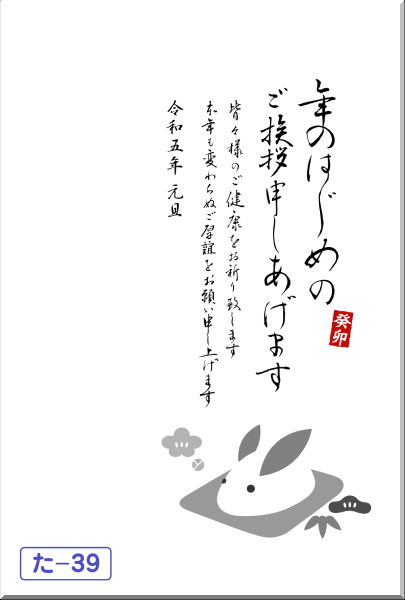 年のはじめの
ご挨拶申しあげます
癸卯
皆々様のご健康をお祈り致します
本年も変わらぬご厚誼をお願い申し上げます
令和五年 元旦
た−39